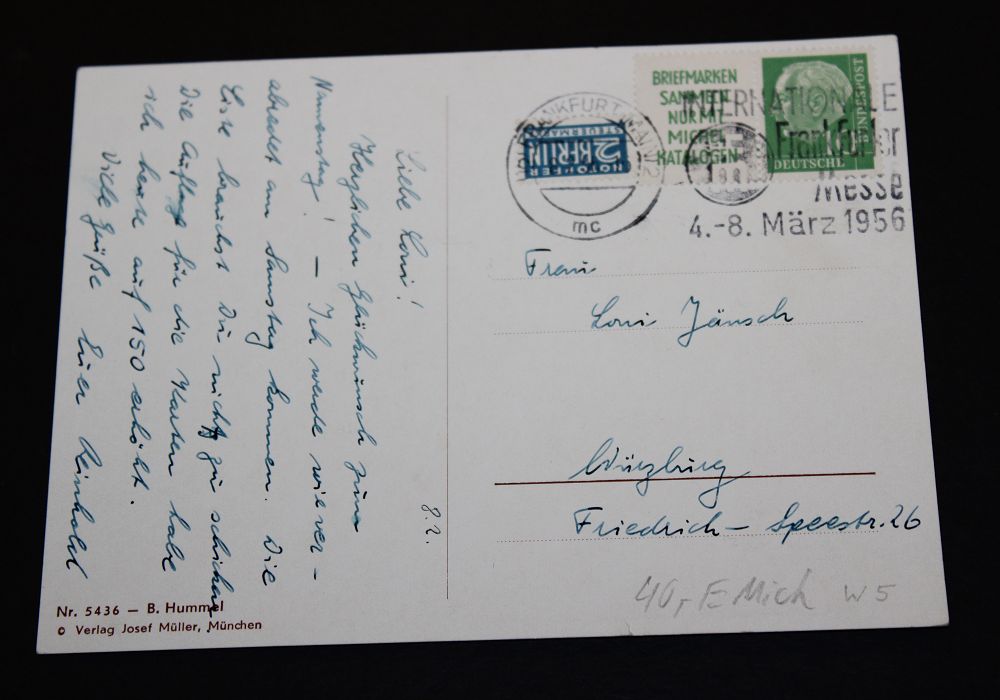 8.2.
Liebe Loni!
Herzlichen Glückwunsch zum
Namenstag! – Ich werde wie ver-
abredet am Samstag kommen. Die
Liste brauchst Du nicht zu schicken.
Die Auflage für die Karten habe
ich heute auf 150 erhöht.
Viele Grüße Euer Reinhold
Nr. 5436 – B. Hummel
© Verlag Josef Müller, München
FRANKFURT (MAIN) 2
mc
NOTOPFER
2 BERLIN
STEUERMARKE
BRIEFMARKEN
SAMMELN
NUR MIT
MICHEL
KATALOGEN
BUNDESPOST
DEUTSCHE
INTERNATIONALE
Frankfurter
Messe
4.-8. März 1956
Frau
Loni Jänsch
Würzburg
Friedrich-Speestr. 26
40,- E Mich W 5